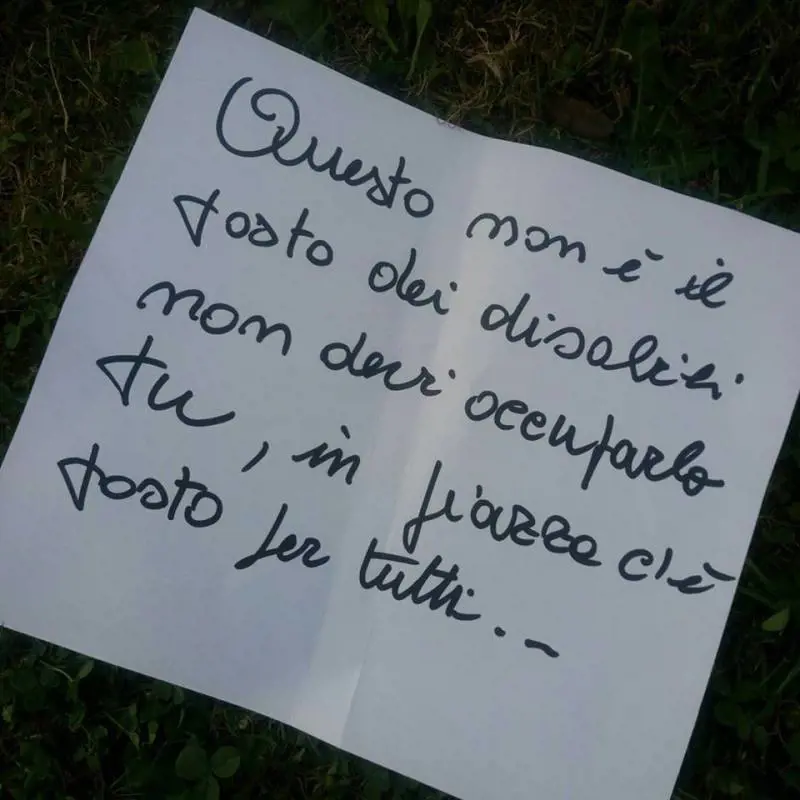 Questo non è il
posto dei disabili
non devi occuparlo
tu, in piazza c'è
posto per tutti.-